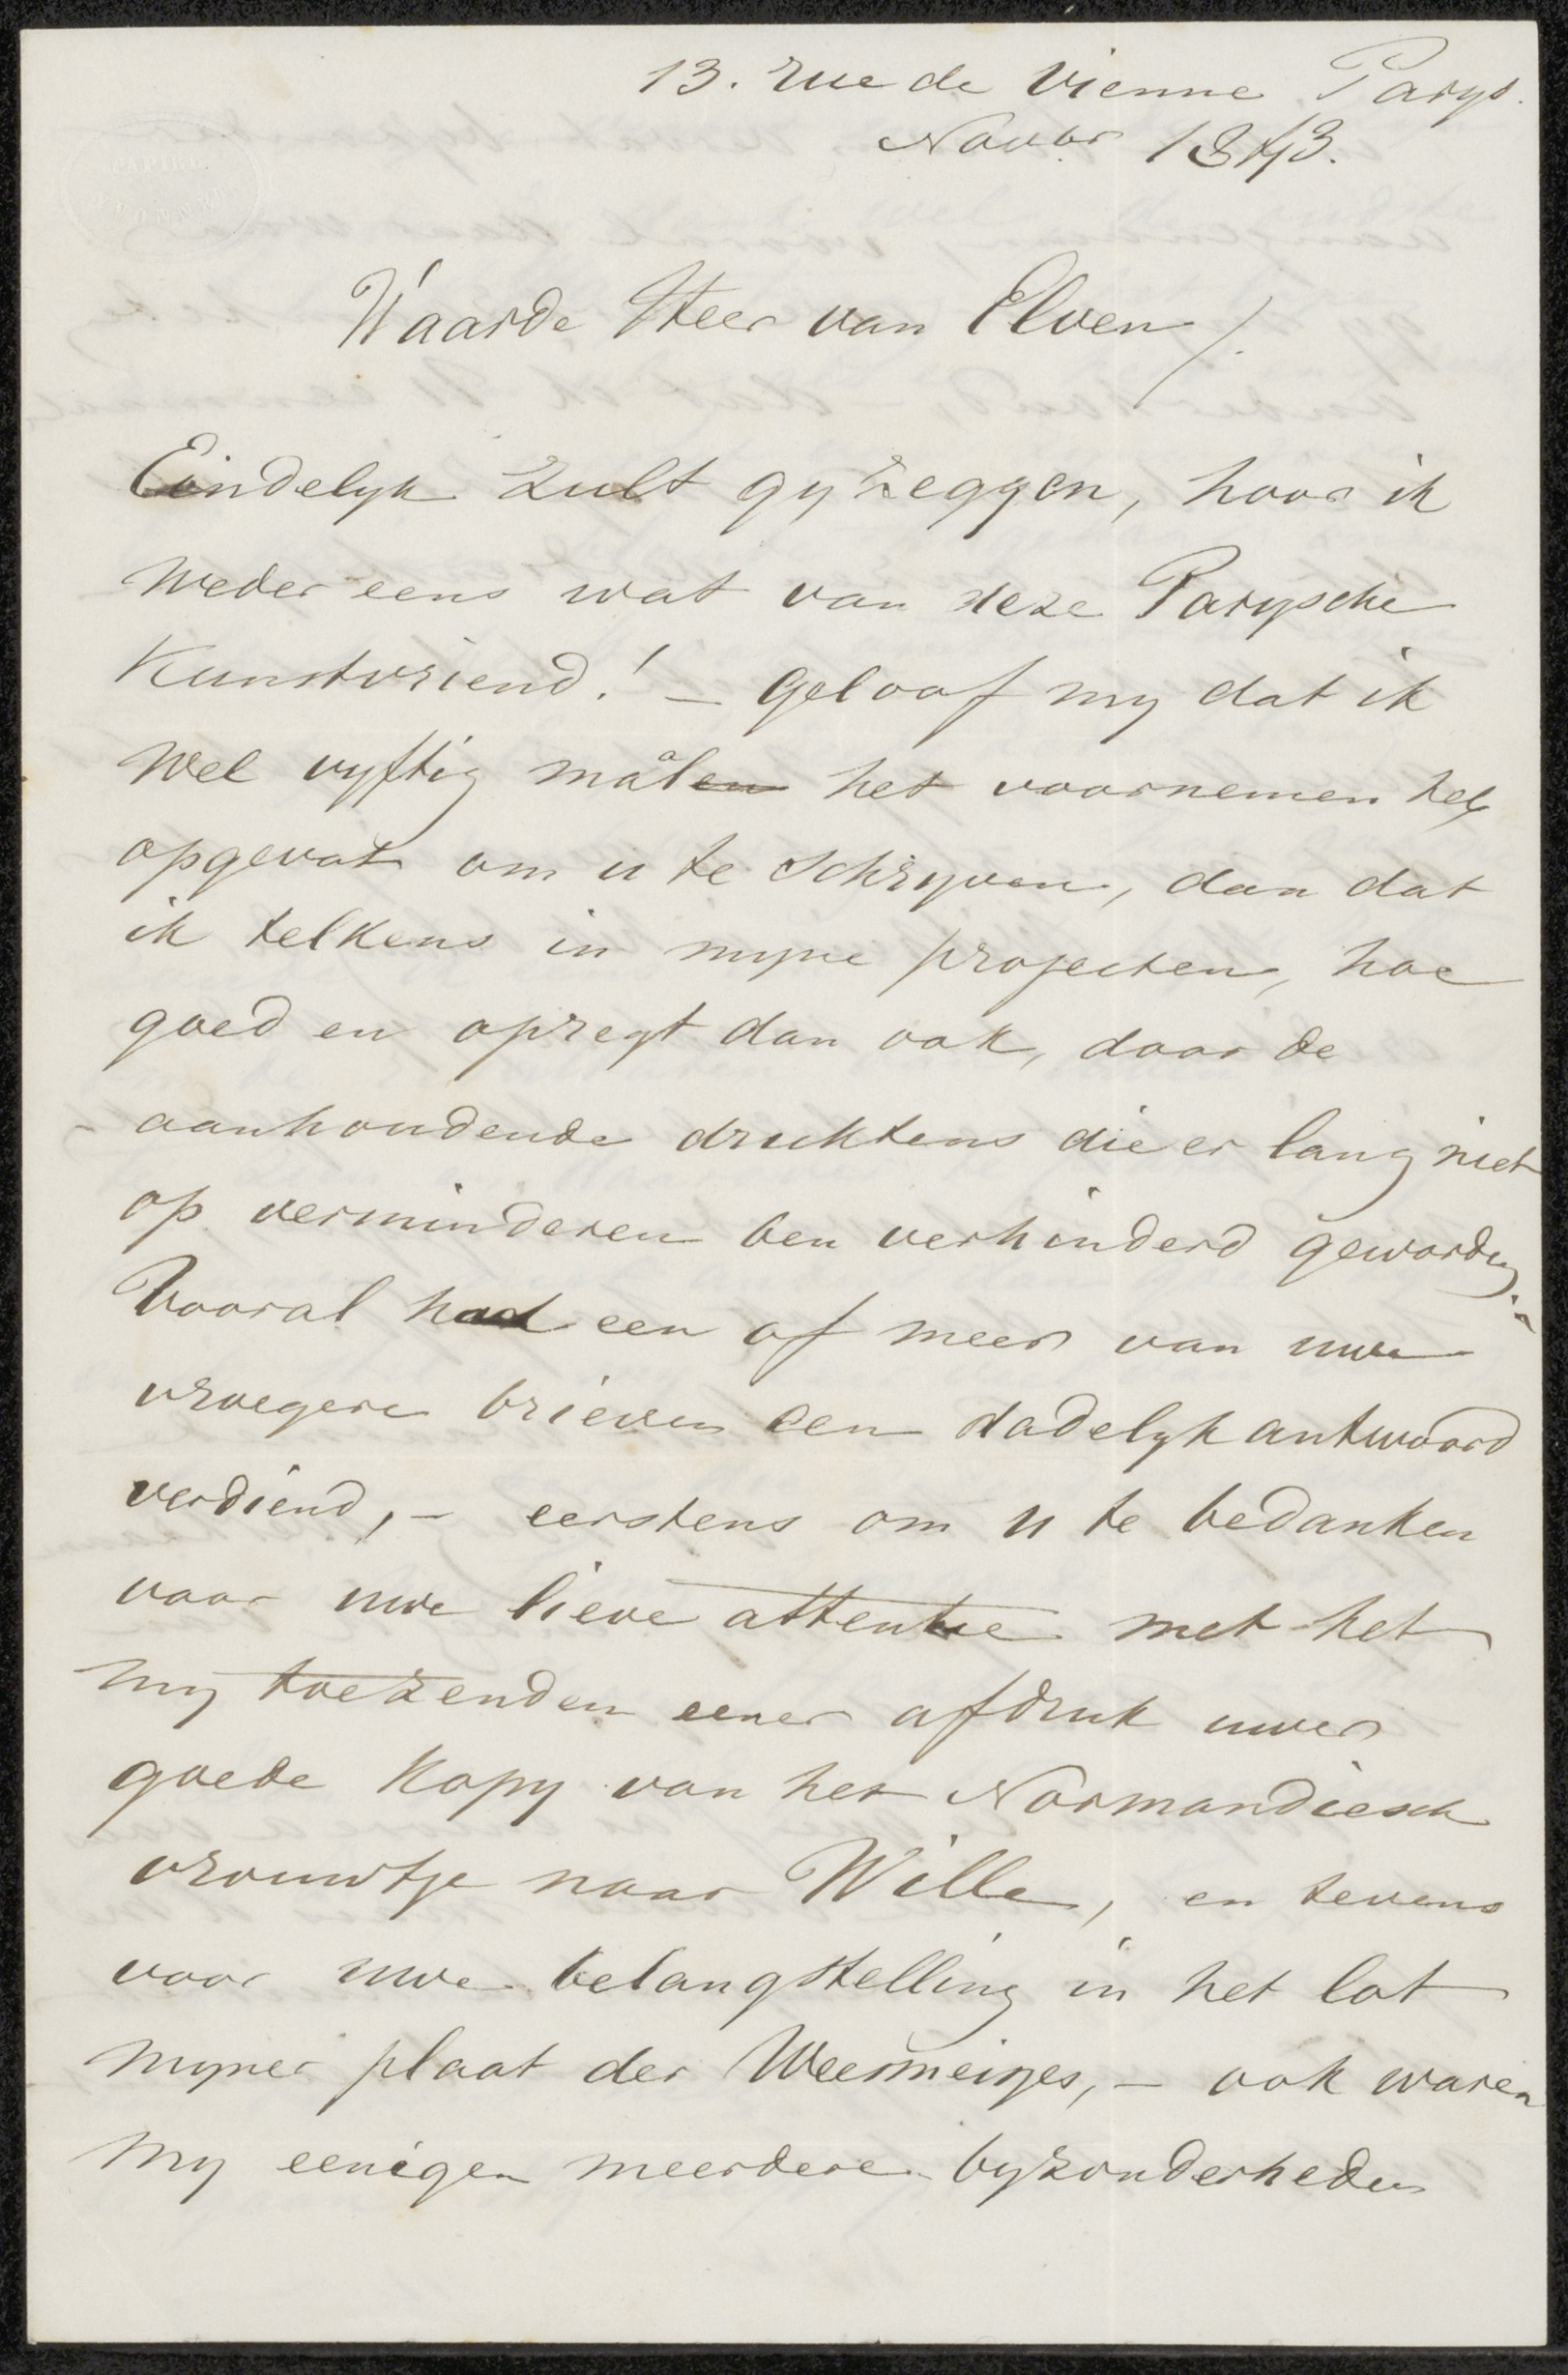 13. rue de Vienne Parys.
Novbr 1873.
Waarde Heer van Elven/.
Eindelyk zult gy zeggen, hoor ik
weder eens wat van deze Parysche
Kunstvriend! – geloof my dat ik
wel vyftig maalen het voornemen heb
opgevat om u te schryven, dan dat
ik telkens in myne projecten, hoe
goed en opregt dan ook, door de
aanhoudende druktens die er lang niet
op verminderen ben verhinderd geworden.
Vooral had een of meer van uwe
vroegere brieven een dadelyk antwoord
verdiend, – eerstens om u te bedanken
voor uwe lieve attentie met het
my toezenden eener afdruk uwer
goede kopy van het Normandiesch
vrouwtje naar Wille, en tevens
voor uwe belangstelling in het lot
myner plaat der Weesmeisjes, – ook waren
my eenigen meerdere byzonderheden